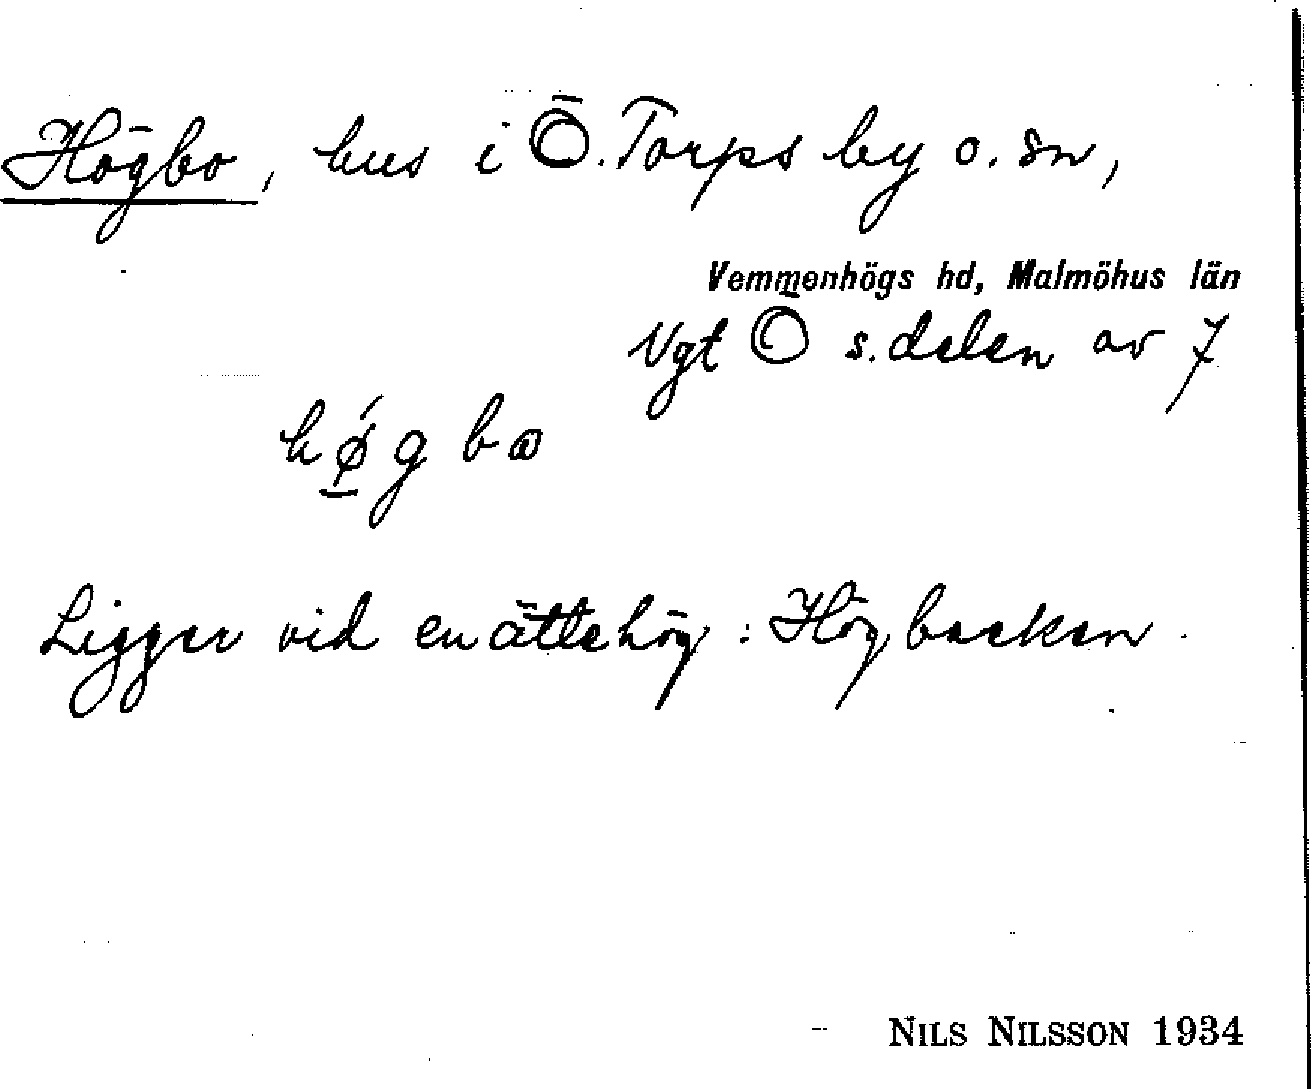 Högbo, hus i Ö. Torps by o. sn,
Vemmenhögs hd, Malmöhus län
Vgt Ö s. delen av 7
hǿ̠g bω
Ligger vid en ättehög: Högbacken.
NILS NILSSON 1934